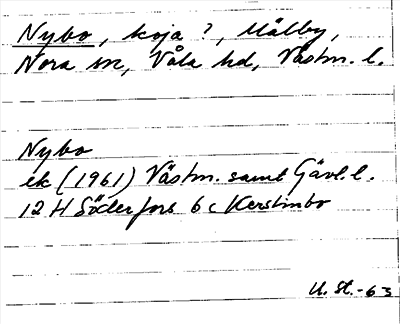 Nybo, koja?, Mälby,
Nora sn, Våla hd, Västm. l.
Nybo
ek (1961) Västm. samt Gävl. l.
12 H Söderfors 6 c Kerstinbo
U. St. -63